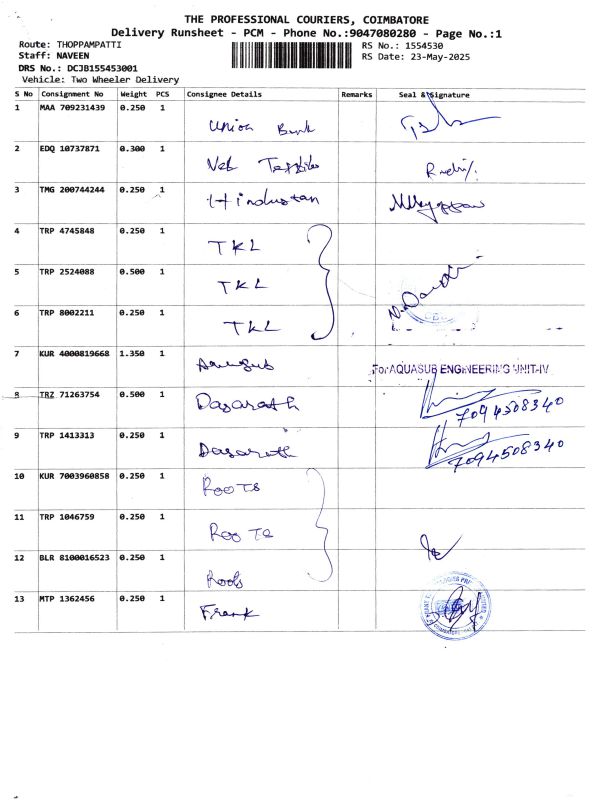 THE PROFESSIONAL COURIERS, COIMBATORE
Delivery Runsheet - PCM - Phone No.:9047080280 - Page No.:1
Route: THOPPAMPATTI
RS No.: 1554530
Staff: NAVEEN
RS Date: 23-May-2025
DRS No.: DCJB155453001
Vehicle: Two Wheeler Delivery
S No Consignment No Weight PCS Consignee Details Remarks Seal & Signature
1 MAA 709231439 0.250 1 Union Bank
2 EDQ 10737871 0.300 1
3 TMG 200744244 0.250 1 Hindustan
4 TRP 4745848 0.250 1 TKL
5 TRP 2524088 0.500 1 TKL
6 TRP 8002211 0.250 1 TKL
7 KUR 4000819668 1.350 1 For AQUASUB ENGINEERING UNIT-IV
8 TRZ 71263754 0.500 1 Dasarath 7094508340
9 TRP 1413313 0.250 1 Dasarath 7094508340
10 KUR 7003960858 0.250 1 Roots
11 TRP 1046759 0.250 1 Roots
12 BLR 8100016523 0.250 1 Roots
13 MTP 1362456 0.250 1 Frank